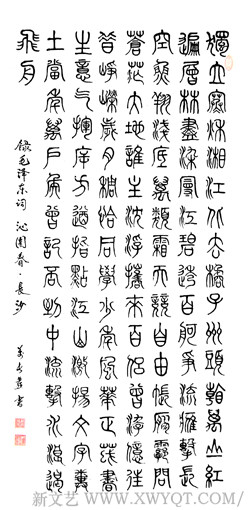 獨立寒秋湘江北去橘子洲頭看萬山紅
遍層林盡染漫江碧透百舸爭流鷹擊長
空魚翔淺底萬類霜天競自由悵寥廓問
蒼茫大地誰主沉浮攜來百侶曾游憶往
昔崢嶸歲月稠恰同學少年風華正茂書
生意氣揮斥方遒指點江山激揚文字糞
土當年萬戶侯曾記否到中流擊水浪遏
飛舟
錄毛澤東詞 沁園春·長沙
新文艺／WWW.XWYQT.COM/